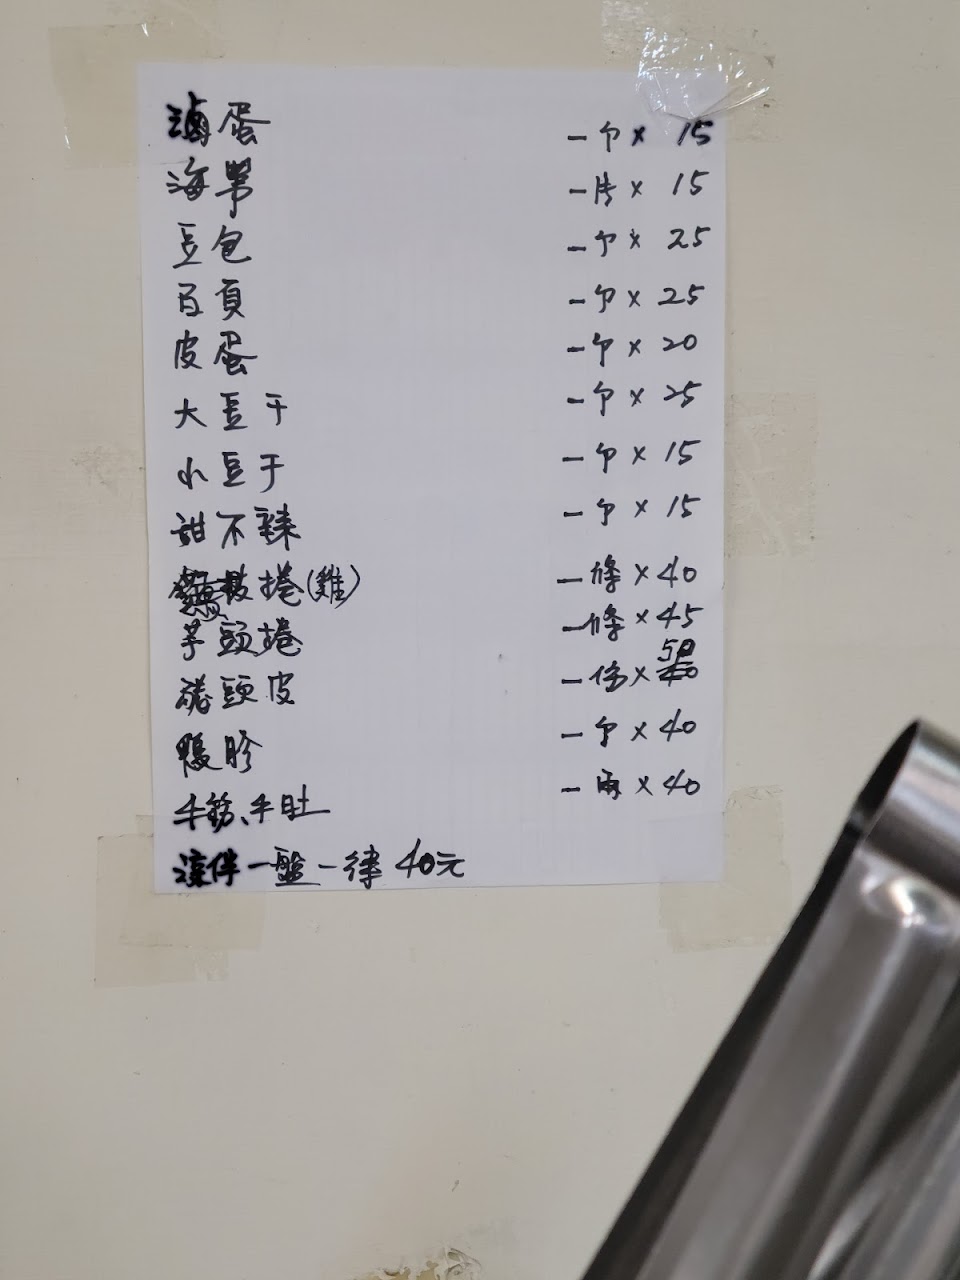 滷蛋 一个 x 15
海帶 一片 x 15
豆包 一个 x 25
百頁 一个 x 25
皮蛋 一个 x 20
大豆干 一个 x 25
小豆干 一个 x 15
甜不辣 一个 x 15
捲(雞) 一條 x 40
芋頭捲 一條 x 45
豬頭皮 一份 x 50
鴨胗 一个 x 40
牛筋、牛肚 一兩 x 40
涼伴一盤一律 40元